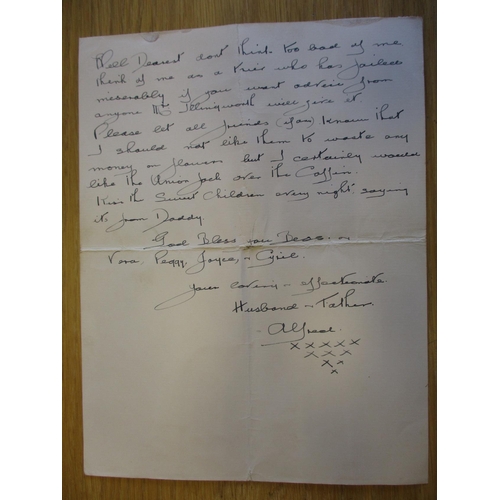 Well Dearest dont think too bad of me
think of me as a trier who has failed
miserably if you want advice from
anyone Mr Illingworth will give it.
Please let all friends know that
I should not like them to waste any
money on flowers but I certainly would
like the Union Jack over the Coffin.
Kiss the Sweet Children every night saying
it from Daddy
God Bless you Bess
Vera, Peggy, Joyce, Cyril.
your loving affectionate
Husband Father
Alfred.
x x x x x
x x x x
x x
x